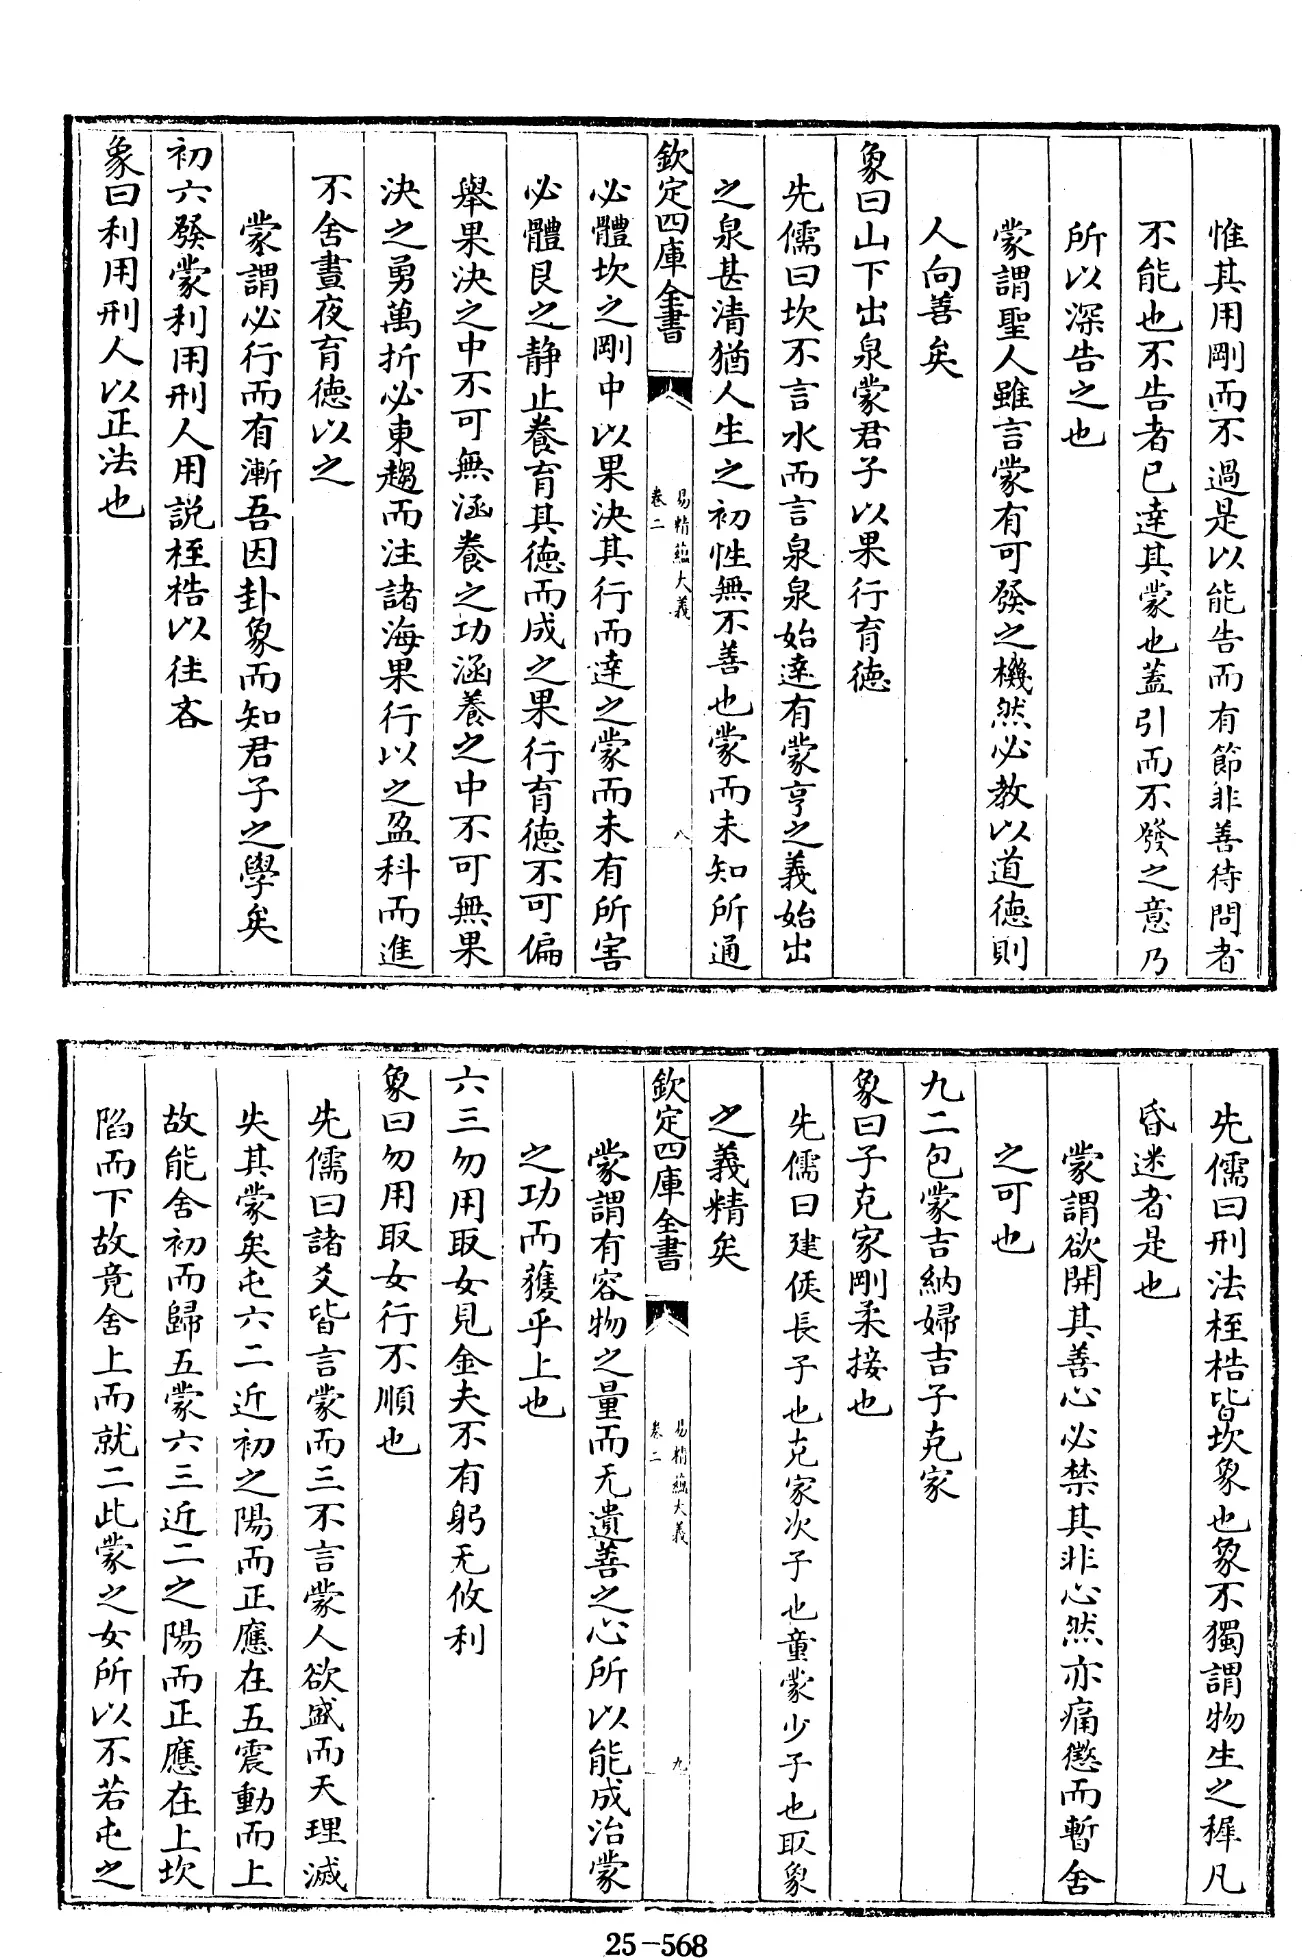 惟其用剛而不過是以能告而有節非善待問者
不能也不告者已達其蒙也蓋引而不發之意乃
所以深告之也
蒙謂聖人雖言蒙有可發之機然必教以道德則
人向善矣
象曰山下出泉蒙君子以果行育德
先儒曰坎不言水而言泉泉始達有蒙亨之義始出
之泉甚清猶人生之初性無不善也蒙而未知所通
欽定四庫全書
易精蘊大義
卷二
八
必體坎之剛中以果決其行而達之蒙而未有所害
必體艮之静止養育其德而成之果行育德不可偏
舉果決之中不可無涵養之功涵養之中不可無果
決之勇萬折必東趨而注諸海果行以之盈科而進
不舍晝夜育德以之
蒙謂必行而有漸吾因卦象而知君子之學矣
初六發蒙利用刑人用説桎梏以往吝
象曰利用刑人以正法也
先儒曰刑法桎梏皆坎象也象不獨謂物生之穉凡
昏迷者是也
蒙謂欲開其善心必禁其非心然亦痛懲而暫舍
之可也
九二包蒙吉納婦吉子克家
象曰子克家剛柔接也
先儒曰建侯長子也克家次子也童蒙少子也取象
之義精矣
欽定四庫全書
易精蘊大義
卷二
九
蒙謂有容物之量而无遺善之心所以能成治蒙
之功而獲乎上也
六三勿用取女見金夫不有躬无攸利
象曰勿用取女行不順也
先儒曰諸爻皆言蒙而三不言蒙人欲盛而天理滅
失其蒙矣屯六二近初之陽而正應在五震動而上
故能舍初而歸五蒙六三近二之陽而正應在上坎
陷而下故竟舍上而就二此蒙之女所以不若屯之
25-568